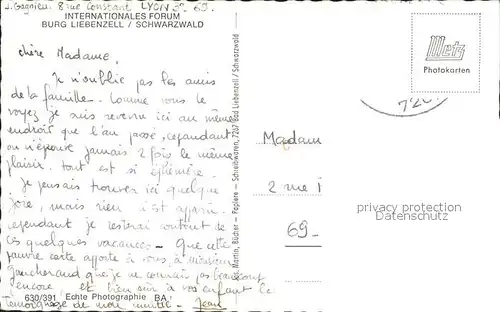 J. Gagnieu. 8 rue Constant LYON 3e 69.
INTERNATIONALES FORUM
BURG LIEBENZELL / SCHWARZWALD
Chère Madame,
Je n'oublie pas les amis
de la famille. Comme vous le
voyez je suis revenu ici au même
endroit que l'an passé, cependant
on n'éprouve jamais 2 fois le même
plaisir. tout est si éphémère.
Je pensais trouver ici quelque
joie, mais rien n'est apparu.
cependant je resterai content de
ces quelques vacances - Que cette
pauvre carte apporte à vous, à Monsieur
Gaucherand que je ne connais pas beaucoup
encore et bien sûr à vos enfants le
témoignage de mon amitié - Jean
630/391 Echte Photographie BA
Martin, Bücher - Papiere - Schreibwaren, 7267 Bad Liebenzell / Schwarzwald
Metz
Photokarten
Madam
2 rue
69-
privacy protection
Datenschutz